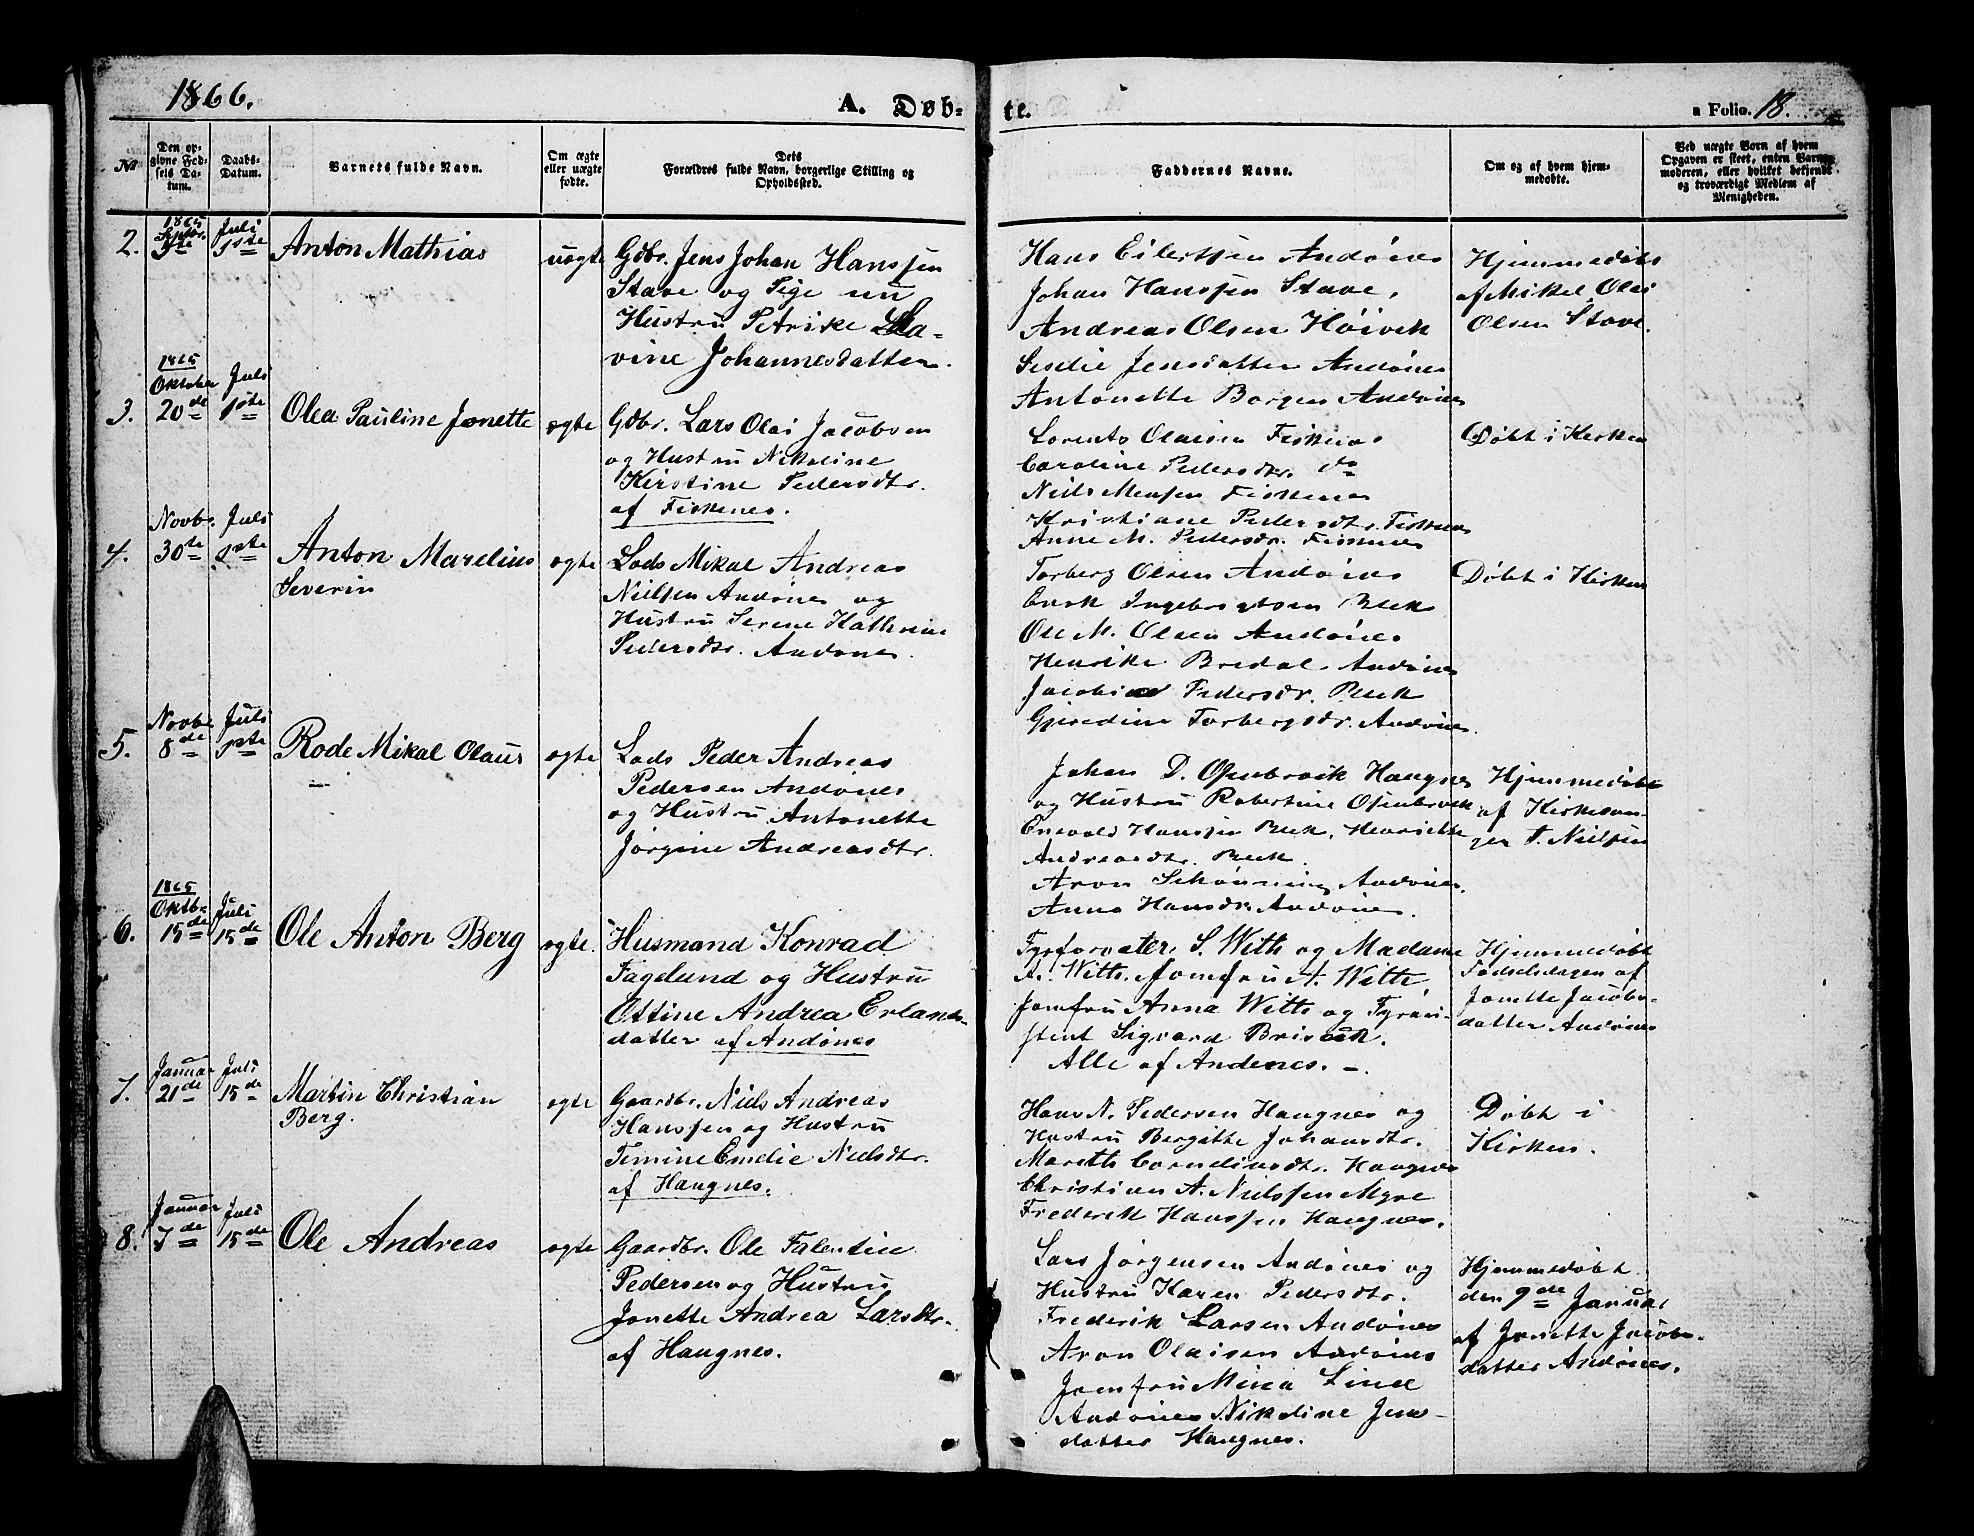 1866.
A. Døb-
te.
a Folio. 18.
№
Den op-
givne Fød-
sels Da-
tum.
Daabs-
Datum.
Barnets fulde Navn.
Om ægte
eller uægte
fødte.
Dets
Forældres fulde Navn, borgerlige Stilling og
Opholdssted.
Faddernes Navne.
Om og af hvem hjem-
medøbte.
Ved uægte Børn af hvem
Opgaven er skeet, enten Barne-
moderen, eller hvilket bekjendt
og troværdigt Medlem af
Menigheden.
2.
1865
Septbr.
Juli
1ste
Anton Mathias
uægte
Gdbr. Jens Johan Hanssen
Stave og Pige
Hustru Petrike La-
vine Johannesdatter.
Hans Eilertsen Andønes
Johan Hanssen Stave,
Andreas Olsen Høivik
Jensdatter Andønes
Antonette Borgen Andønes
Hjemmedøbt
af Mikel Olai
Olsen Stave.
3.
1865
Oktober
20de
Juli
1ste
Olea Pauline Jonette
ægte
Gdbr. Lars Olai Jacobsen
og Hustru Nikoline
Kirstine Pedersdtr.
af Fiskenes.
Lorents Olaisen Fiskenes
Caroline Pedersdtr. do
Niels Monsen Fiskenes
Kristiane Pedersdtr. Fiskenes
Anne M. Pedersdr. Fiskenes
Døbt i Kirken
4.
Novbr.
30te
Juli
1ste
Anton Marelius
Severin
ægte
Lods Mikal Andreas
Nielsen Andønes og
Hustru Serene Kathrine
Pedersdtr. Andønes.
Torberg Olsen Andønes
Ingebrigtsen Bleik
Ole M. Olsen Andønes
Henrike Bredal Andønes
Jacobine Pedersdr. Bleik
Torbergsdr. Andønes.
Døbt i Kirken
5.
Novbr
8de
Juli
1ste
Rode Mikal Olaus
ægte
Lods Peder Andreas
Pedersen Andønes
og Hustru Antonette
Jørgine Andreasdtr.
Johan D. Osenbroik Haugnes
og Hustru Robertine Osenbroik
Enevold Hanssen Bleik, Henriette
Andreasdtr. Bleik.
Aron Schønning Andønes.
Anna Hansdr. Andønes.
Hjemmedøbt
af Kirkesan-
ger T. Nielsen
6.
1865
Oktbr.
15de
Juli
15de
Ole Anton Berg
ægte.
Husmand Konrad
Fagelund og Hustru
Ottine Andrea Erlands-
datter af Andønes
Fyrforvalter S. Witth og Madame
A. Witth. Jomfru A. Witth,
Jomfru Anna Witth og Fyrasi-
stent Sigvard
Alle af Andenes. –
Hjemmedøbt
Fødselsdagen af
Jonette Jacobs-
datter Andønes
7.
Januar
21de
Juli
15de
Martin Christian
Berg.
ægte
Gaardbr. Niels Andreas
Hanssen og Hustru
Emelie Nielsdtr.
af Haugnes.
Hans N. Pedersen Haugnes og
Hustru Bergitte Johansdtr.
Mareth Corneliusdtr. Haugnes
Christian A. Nielssen Myre
Frederik Hanssen Haugnes.
Døbt i
Kirken.
8.
Januar
7de
Juli
15de
Ole Andreas
ægte
Gaardbr. Ole Falentin
Pedersen og Hustru
Jonette Andrea Larsdtr.
af Haugnes.
Lars Jørgensen Andønes og
Hustru Karen Pedersdtr.
Frederik Larsen Andønes
Aron Olaisen Andønes
Jomfru Mina Lind
Andønes Nikoline Jens-
datter Haugnes.
Hjemmedøbt
den 9de Januar
af Jonette Jacobs-
datter Andønes.